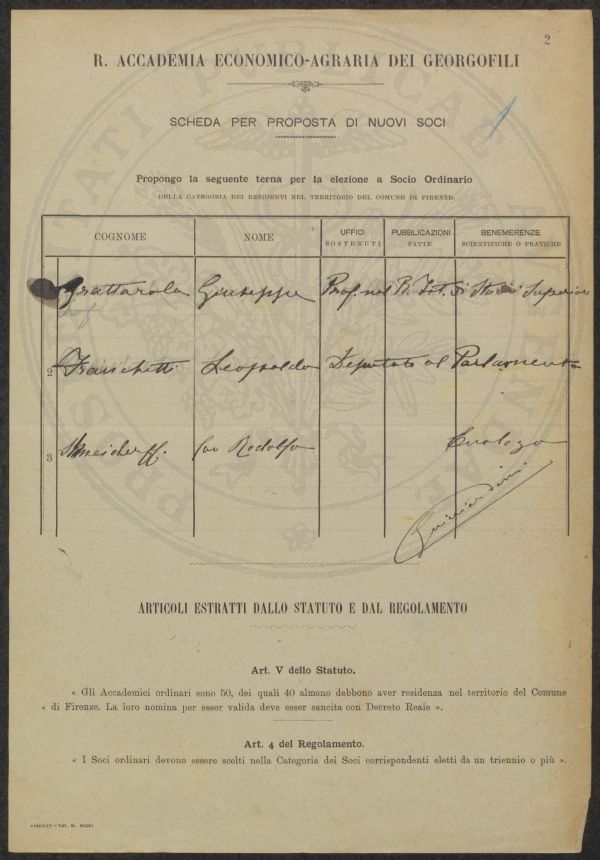 2
R. ACCADEMIA ECONOMICO-AGRARIA DEI GEORGOFILI
SCHEDA PER PROPOSTA DI NUOVI SOCI
Propongo la seguente terna per la elezione a Socio Ordinario
DELLA CATEGORIA DEI RESIDENTI NEL TERRITORIO DEL COMUNE DI FIRENZE.
COGNOME NOME UFFICI SOSTENUTI PUBBLICAZIONI FATTE BENEMERENZE SCIENTIFICHE O PRATICHE
Grattarola Giuseppe Prof. nel R. Ist. di Studi Superior
2 Franchetti Leopoldo Deputato al Parlamento
3 Rodolfo Enologo
ARTICOLI ESTRATTI DALLO STATUTO E DAL REGOLAMENTO
Art. V dello Statuto.
« Gli Accademici ordinari sono 50, dei quali 40 almeno debbono aver residenza nel territorio del Comune
« di Firenze. La loro nomina per esser valida deve esser sancita con Decreto Reale ».
Art. 4 del Regolamento.
« I Soci ordinari devono essere scelti nella Categoria dei Soci corrispondenti eletti da un triennio o più ».
FIRENZE — TIP. M. RICCI